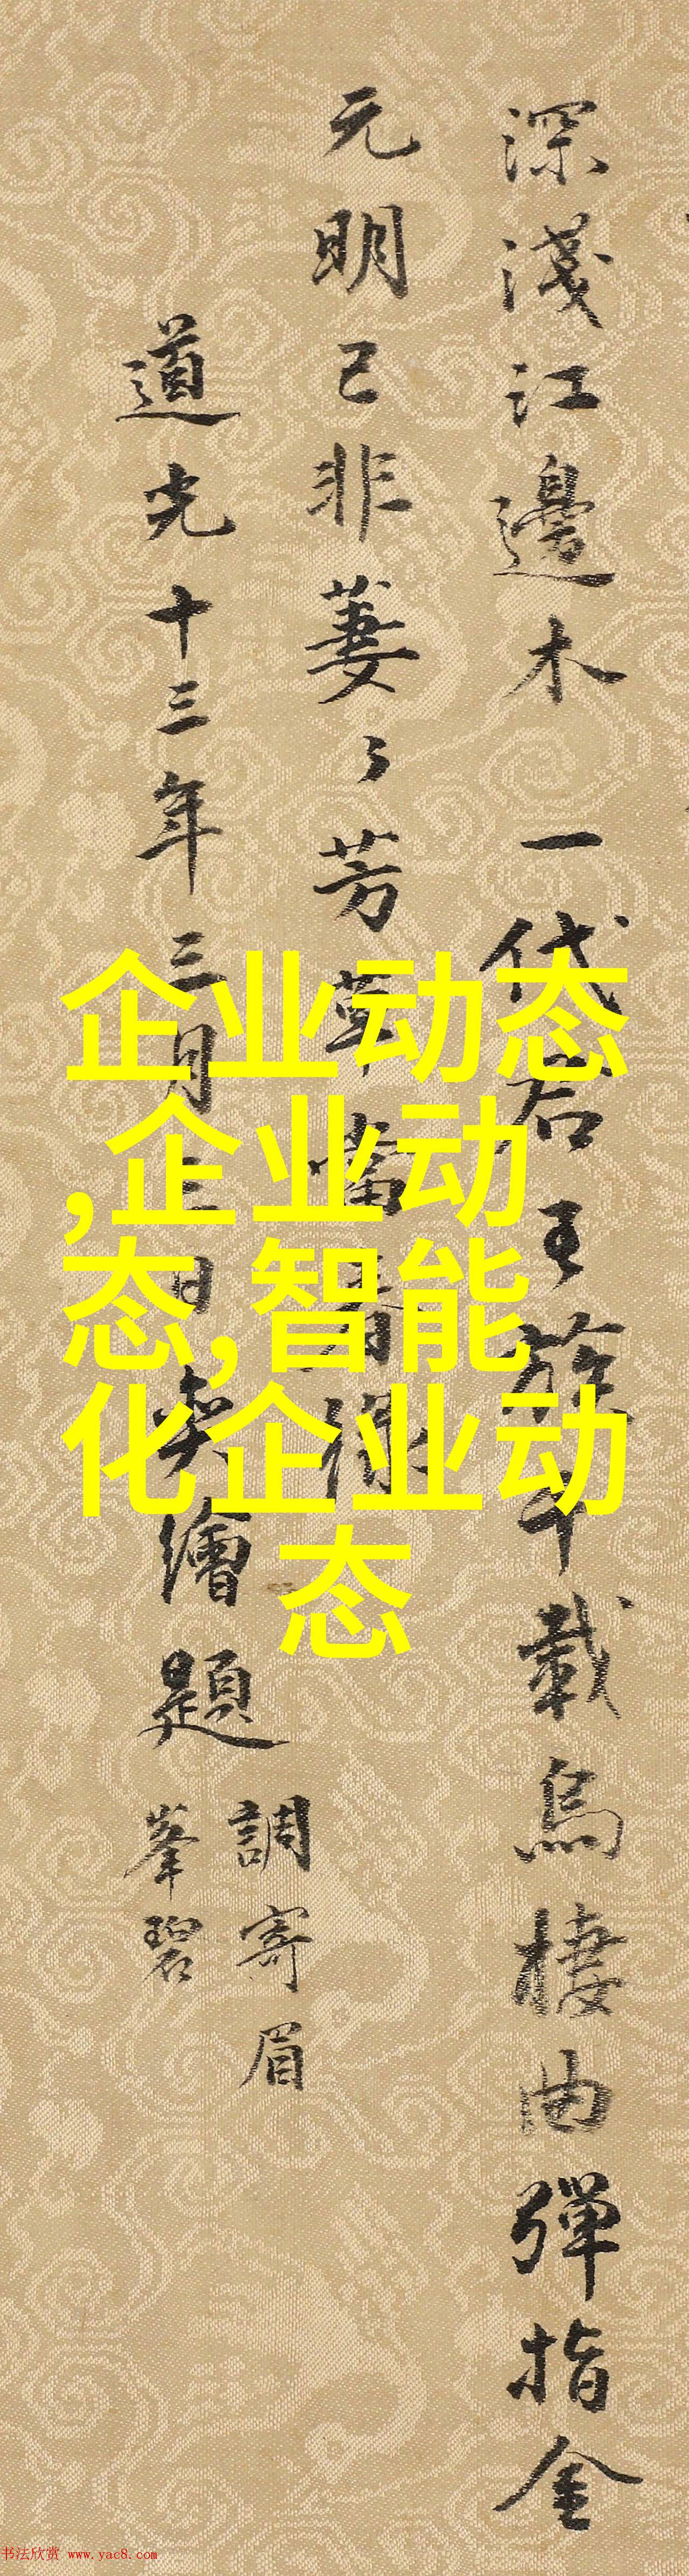 深淺江邊木 一代君王千載烏棲曲彈指金
元明已非萋〻芳草當春綠
道光十三年三月日奕繪題
調寄眉
峯碧
企业动态
,企业动
态,智能
化企业动
态
书法欣赏 www.yac8.com